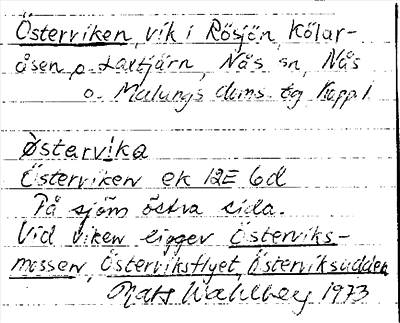 Österviken, vik i Rösjön, Kölar-
åsen o. Laxtjärn, Nås sn, Nås
o. Malungs doms. tg Kopp. l
Østarvika
Österviken ek 12E 6d
På sjöns östra sida.
Vid viken ligger Österviks-
mossen, Österviksflyet, Österviksudden
Mats Wahlberg 1973